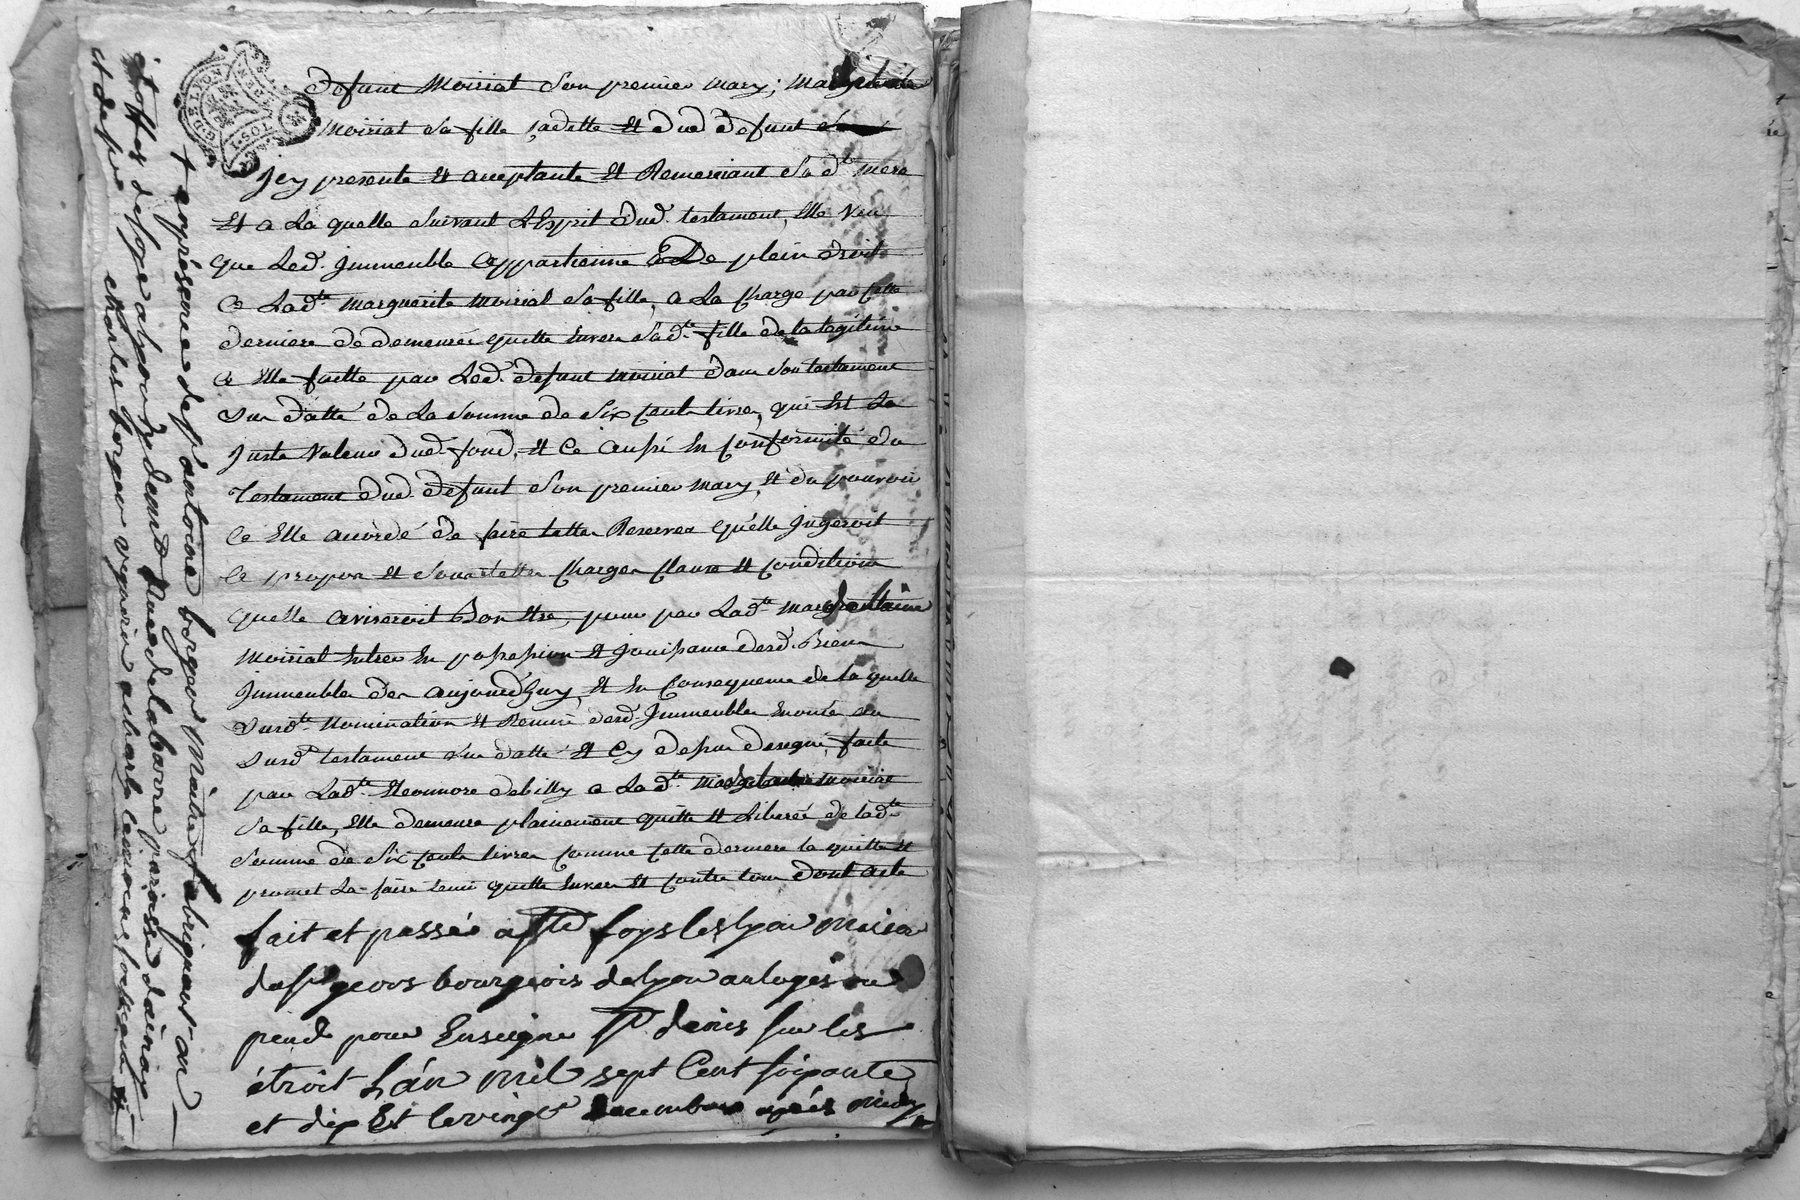 defunt moiriat son premier mary; marguerite
moiriat sa fille cadette et dud defunt
Jcy presente et acceptante et Remerciant sad.te mere
Et a La quelle suivant L'Esprit dud. testament, Elle veu
que Led. Jmmeuble appartienne De plein droit
a Lad.te marguerite moiriat sa fille, a La Charge par cette
derniere de demeurer quitte Envers sad.te fille de la legitime
a Elle faitte par Led. defunt moiriat dans son testament
sus datté de La somme de six cents livres, qui Est La
Juste valeur dud. fond, et ce aussi En Conformité du
Testament dud. defunt son premier mary, et du pouvoir
a Elle accordé de faire telles Reserves qu'elle jugeroit
a propos et sous telles Charges Clauses et Conditions
quelle aviseroit Bon Etre, pour par Lad.te
moiriat Entrer En possession et jouissance desd. Biens
Jmmeubles des aujourd'huy, et En Consequence de la quelle
susd.te nomination et Remise desd. Jmmeubles Enoncés au
susd. testament sus datté et cy dessus designé, faite
par Lad.te Eleonnore debilly a Lad.te moiriat
sa fille, Elle demeure plainement quitte et Liberée de lad.te
somme de six cents livres comme cette derniere la quitte et
promet La faire tenir quitte Envers et Contre tous dont acte
fait et passé a S.te foys les lyon maison
du s.r geoors bourgeois de lyon au logis ou
pend pour Enseigne S.t denis sur les
étroit L'an mil sept Cent soixante
et dix Et le vingt decembre après midy
+ en présence de s.r antoine borgeor Maitre fabriquant en
étoffes de soye a lyon y demt Rue de la barre paroisse d'ainay
et de s.r charles borgeor vigneron